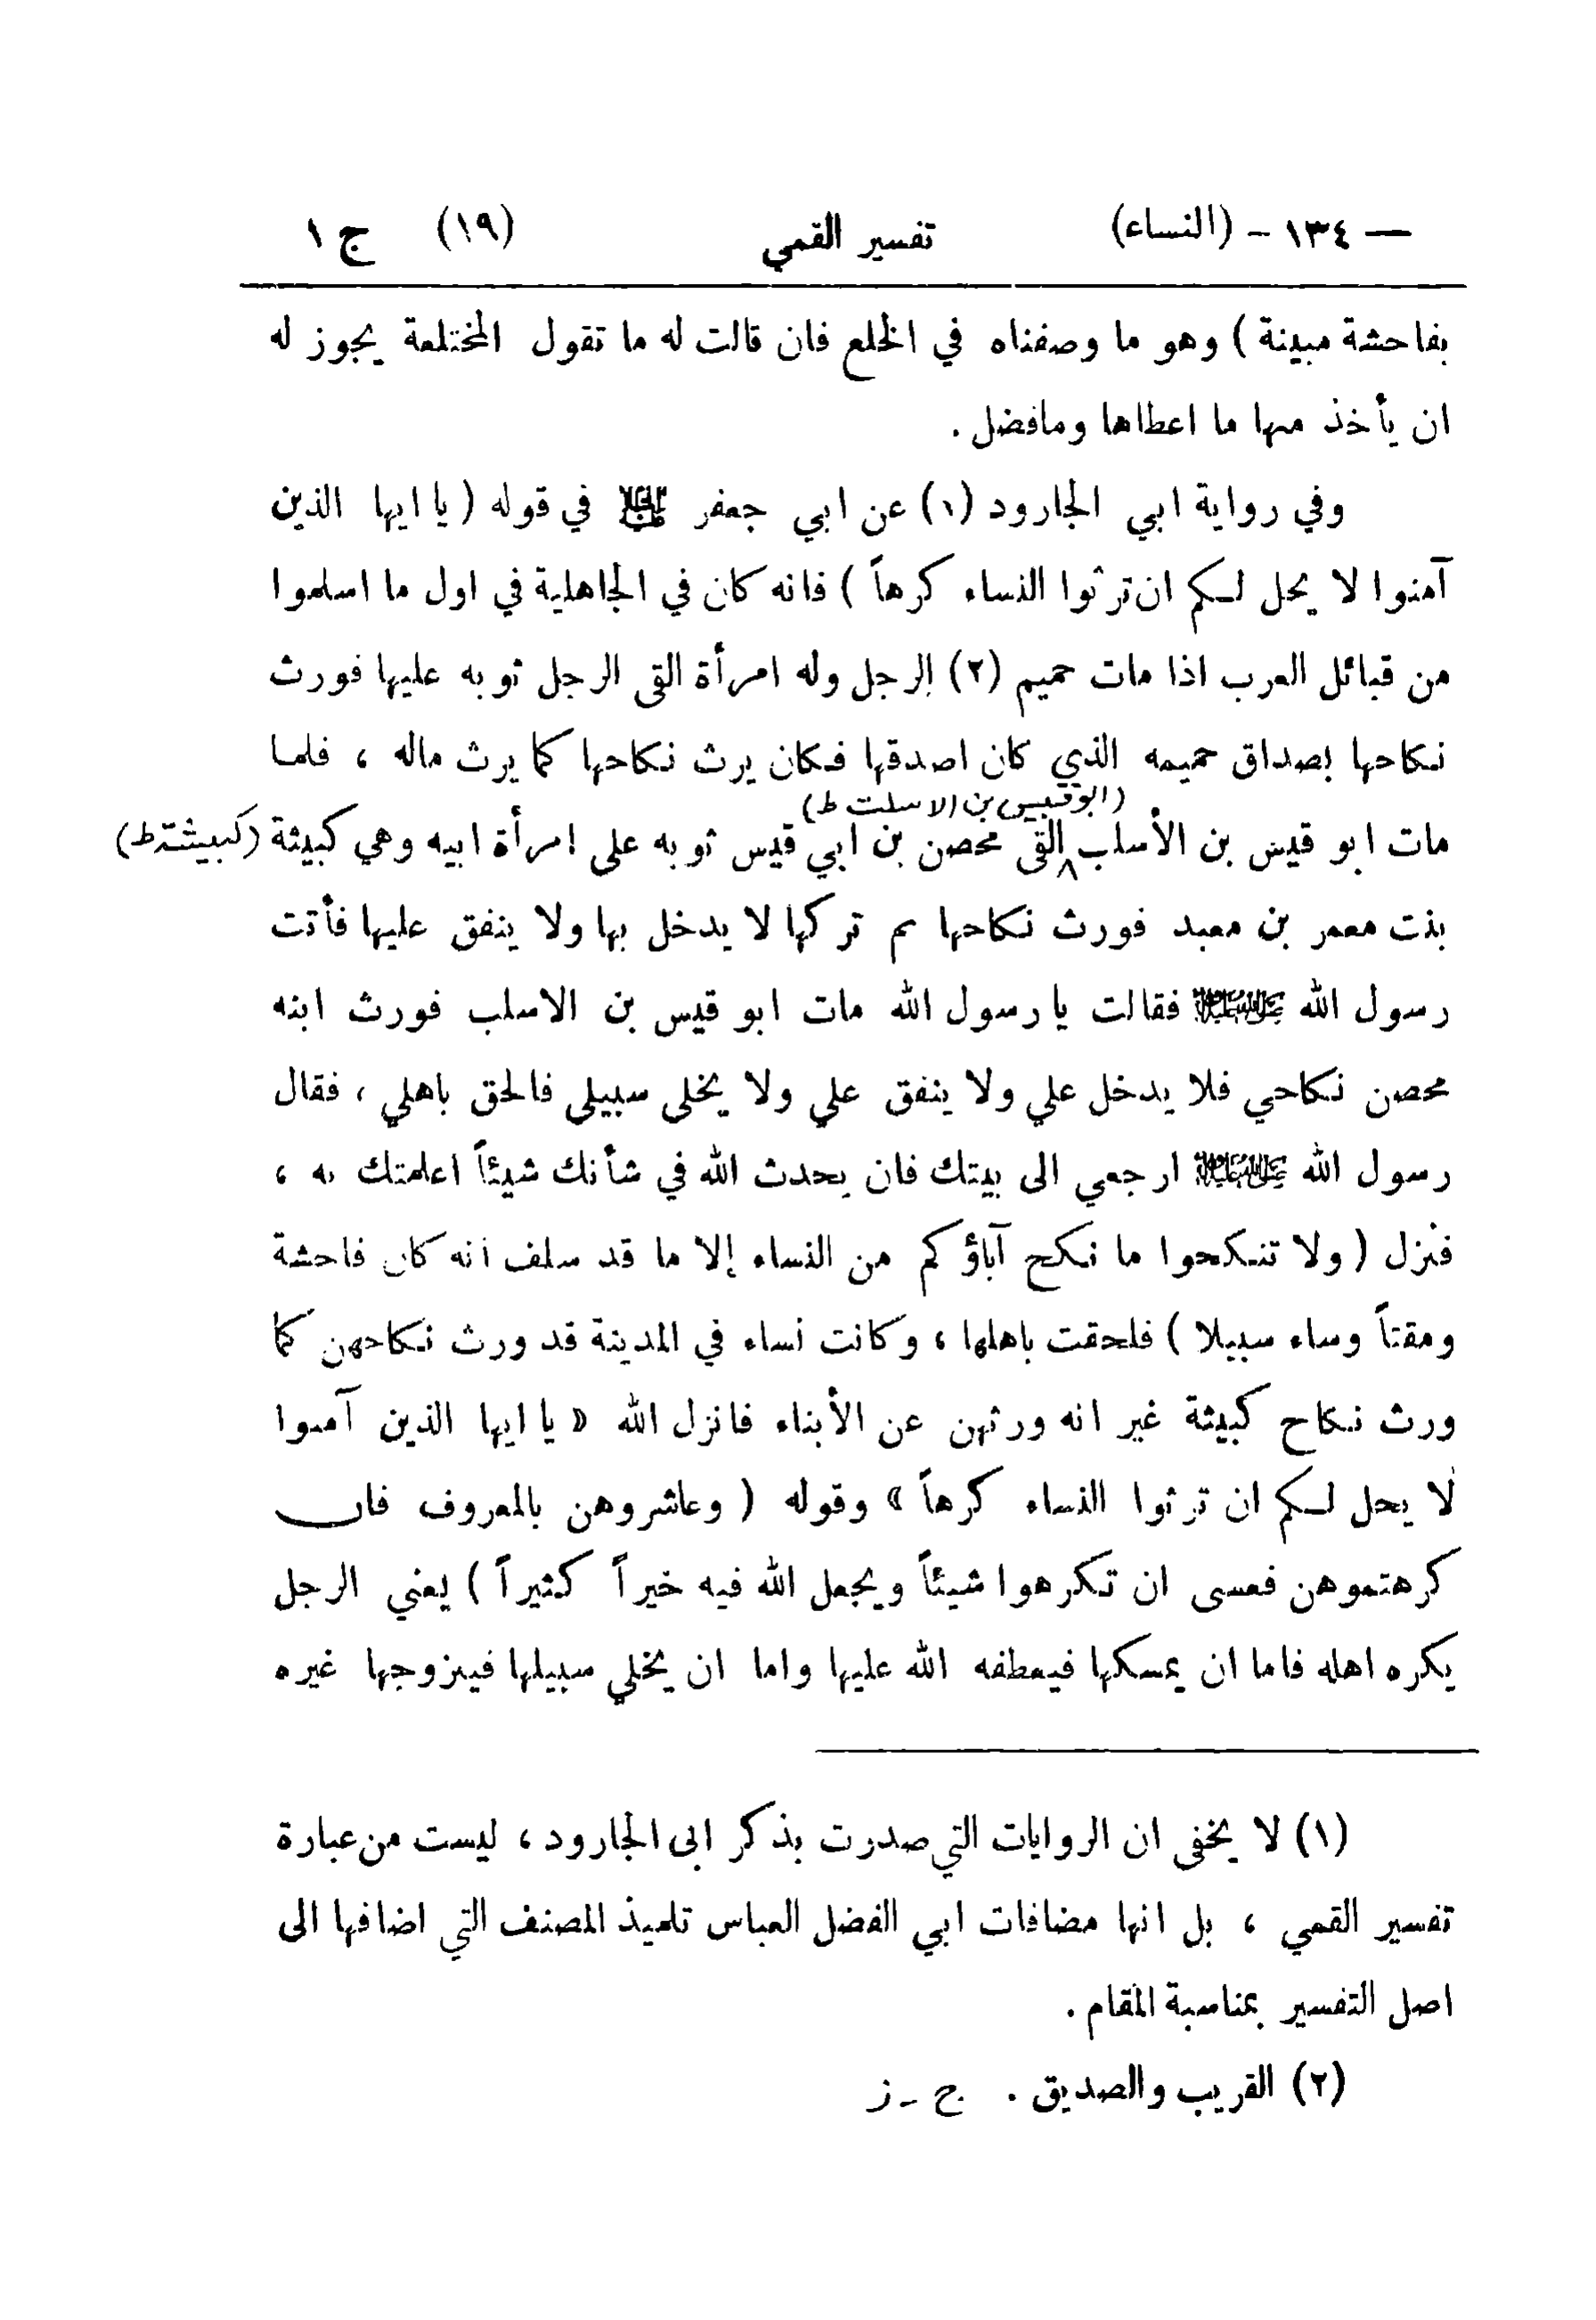 — ١٣٤ — (النساء) تفسير القمي (١٩) ج ١
بفاحشة مبينة ) وهو ما وصفناه في الخلع فان قالت له ما تقول المختلعة يجوز له
ان يأخذ منها ما اعطاها ومافضل .
وفي رواية ابي الجارود (١) عن ابي جعفر عليه السلام في قوله ( يا ايها الذين
آمنوا لا يحل لكم ان ترثوا النساء كرهاً ) فانه كان في الجاهلية في اول ما اسلموا
من قبائل العرب اذا مات حميم (٢) الرجل وله امرأة القى الرجل ثوبه عليها فورث
نكاحها بصداق حميمه الذي كان اصدقها فكان يرث نكاحها كما يرث ماله ، فلما
(ابو قبيس بن الاسلت ط)
مات ابو قيس بن الأسلب القى محصن بن ابي قيس ثوبه على امرأة ابيه وهي كبيثة (كبيشة ط)
بنت معمر بن معبد فورث نكاحها ثم تركها لا يدخل بها ولا ينفق عليها فأتت
رسول الله صلى الله عليه وآله فقالت يا رسول الله مات ابو قيس بن الاسلب فورث ابنه
محصن نكاحي فلا يدخل علي ولا ينفق علي ولا يخلى سبيلي فالحق باهلي ، فقال
رسول الله صلى الله عليه وآله ارجعي الى بيتك فان يحدث الله في شأنك شيئاً اعلمتك به ،
فنزل ( ولا تنكحوا ما نكح آباؤكم من النساء إلا ما قد سلف انه كان فاحشة
ومقتاً وساء سبيلا ) فلحقت باهلها ، وكانت نساء في المدينة قد ورث نكاحهن كما
ورث نكاح كبيثة غير انه ورثهن عن الأبناء فانزل الله « يا ايها الذين آمنوا
لا يحل لكم ان ترثوا النساء كرهاً » وقوله ( وعاشروهن بالمعروف فان
كرهتموهن فعسى ان تكرهوا شيئاً ويجعل الله فيه خيراً كثيراً ) يعني الرجل
يكره اهله فاما ان يمسكها فيعطفه الله عليها واما ان يخلي سبيلها فيتزوجها غيره
(١) لا يخفى ان الروايات التي صدرت بذكر ابى الجارود ، ليست من عبارة
تفسير القمي ، بل انها مضافات ابي الفضل العباس تلميذ المصنف التي اضافها الى
اصل التفسير بمناسبة المقام .
(٢) القريب والصديق . ج ـ ز